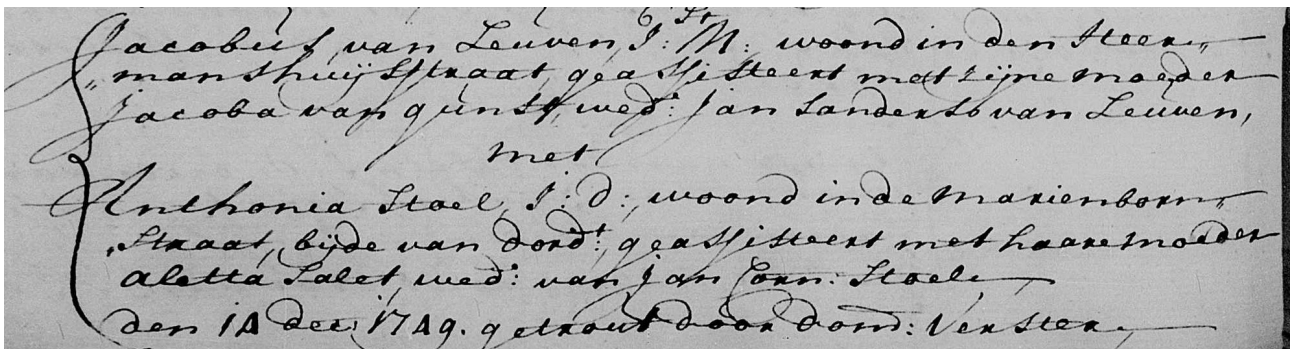 Jacobus van Leuven, J: M: woond in den Steer„
„manshuijsstraat, geassisteert met zijne moeder
Jacoba van gunst, wed:e Jan Sanderse van Leuven,
met
Anthonia Stoel, J: d:, woond in de Marienborn„
„Straat, bijde van dord:t geassisteert met haare moeder
aletta Salet, wed:e van Jan Corn: Stoel,
den 14 dec: 1749. getrout door dom: Verster.